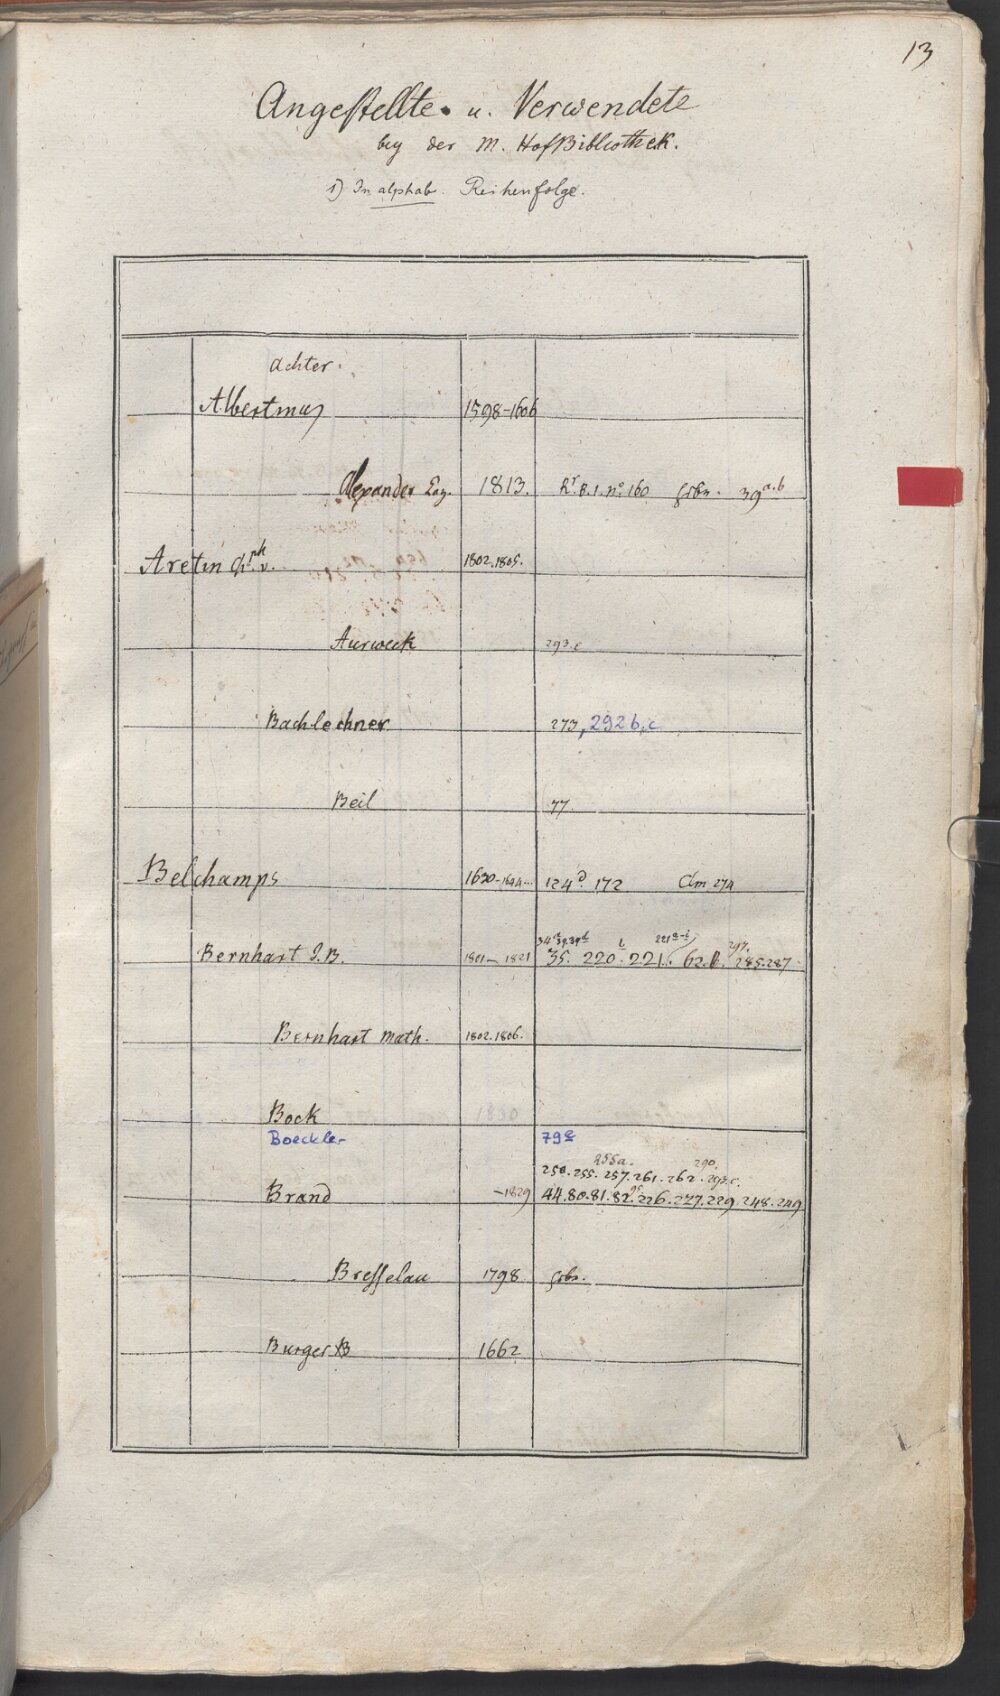 13
Angestellte u. Verwendete
bey der M. HofBibliothek.
1) In alphab. Reihenfolge.
Achter.
Albertmus 1598-1606
Alexander 1813. B.1. No. 160 39a.b
Aretin v. 1802.1805.
Aurweck 293.c
Bachlechner 273, 292 b, c
Beil 77
Belchamps 1630-1644... 124 172 Clm 274
Bernhart J.B. 1801-1821 35. 220. 221. 62.b. 285.287
Bernhart Math. 1802.1806.
Bock
Boeckler 79
255a. 290
250.255.257.261.262.293.c.
Brand -1829 44.80.81.82.226.227.229.248.249
Bresselau 1798
Burger B 1662